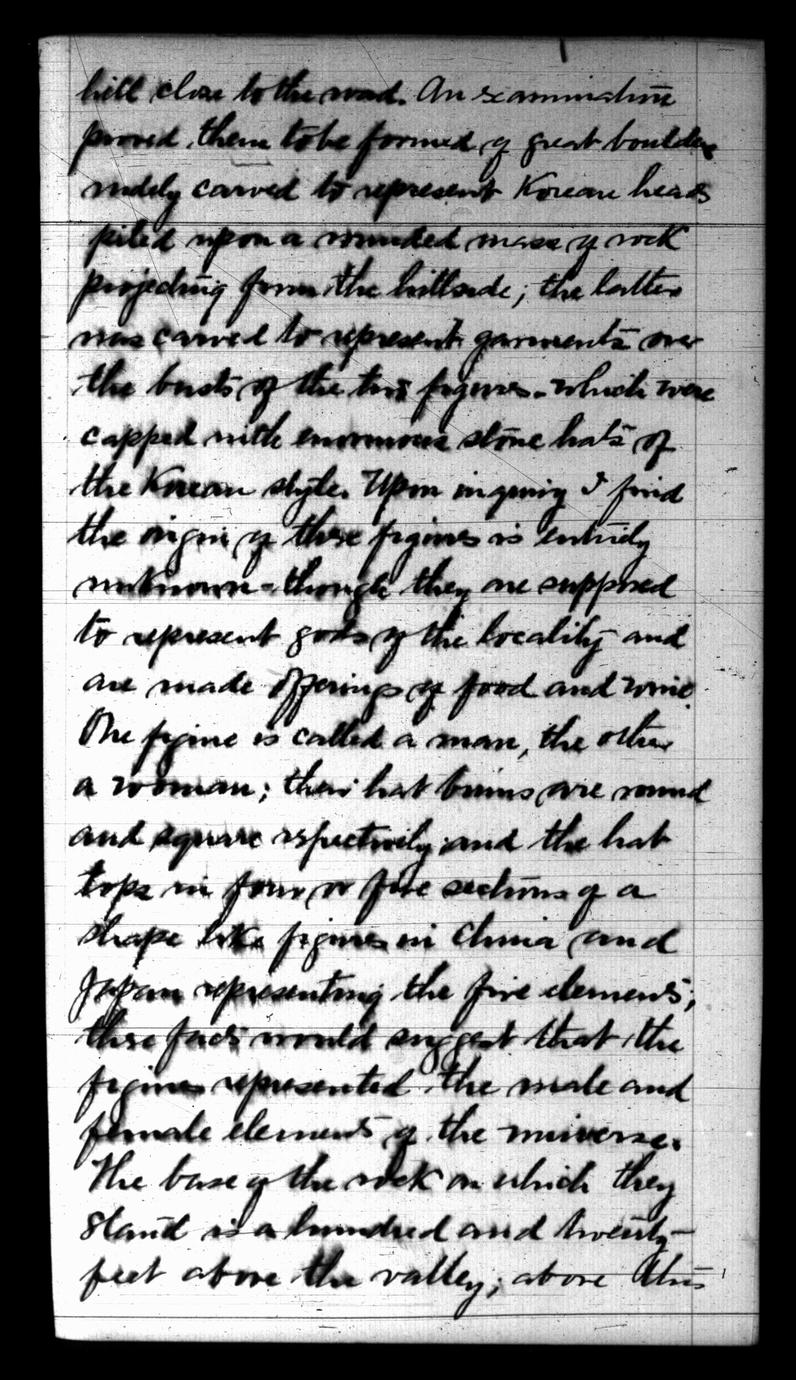 hill close to the road. An examination
proved them to be formed of great boulders
rudely carved to represent Korean heads
piled upon a rounded mass of rock
projecting form the hillside; the latter
was carved to represent garments over
the busts of the two figures - which were
capped with enormous stone hats of
the Korean style. Upon inquiry I find
the origin of these figures is entirely
unknown - though they are supposed
to represent gods of the locality and
are made offerings of food and wine.
One figure is called a man, the other
a woman; their hat brims are round
and square respectively and the hat
tops in four or five sections of a
shape like figures in China and
Japan representing the five elements;
these facts would suggest that the
figures represented the male and
female elements of the universe.
The base of the rock on which they
stand is a hundred and twenty
feet above the valley; above this